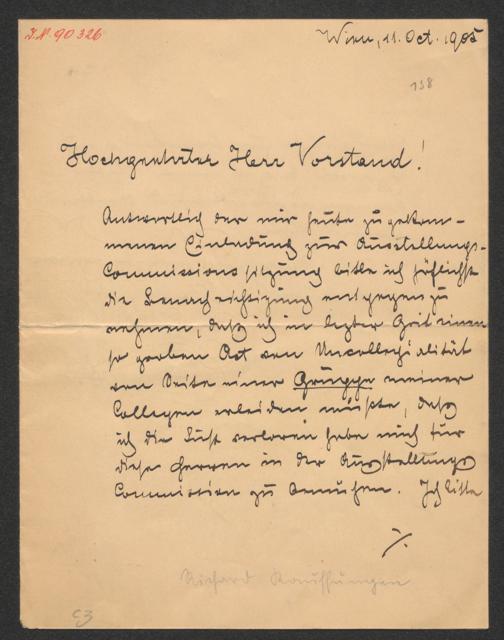 I.N. 90326
Wien, 11. Oct. 1905
138
Hochgeehrter Herr Vorstand!
Antwortlich der mir heute zugekom-
menen Einladung zur Ausstellungs-
Commissionssitzung bitte ich höflichst
die Benachrichtigung entgegen zu
nehmen, daß ich in letzter Zeit einen
so groben Act von Uncollegialität
von Seite einer Gruppe meiner
Collegen erleiden mußte, daß
ich die Lust verloren habe mich für
diese Herren in der Ausstellungs
Commission zu bemühen. Ich bitte
./.
Richard Kauffungen